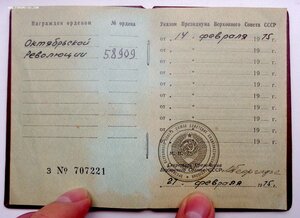 Награжден орденом № ордена
Октябрьской
Революции 58909
З № 707221
Указом Президиума Верховного Совета СССР
от 14 февраля 1975 г.
от 19 г.
от 19 г.
от 19 г.
от 19 г.
от 19 г.
от 19
от 19
Секретарь Президиума
Верховного Совета
21 февраля 1975 г.